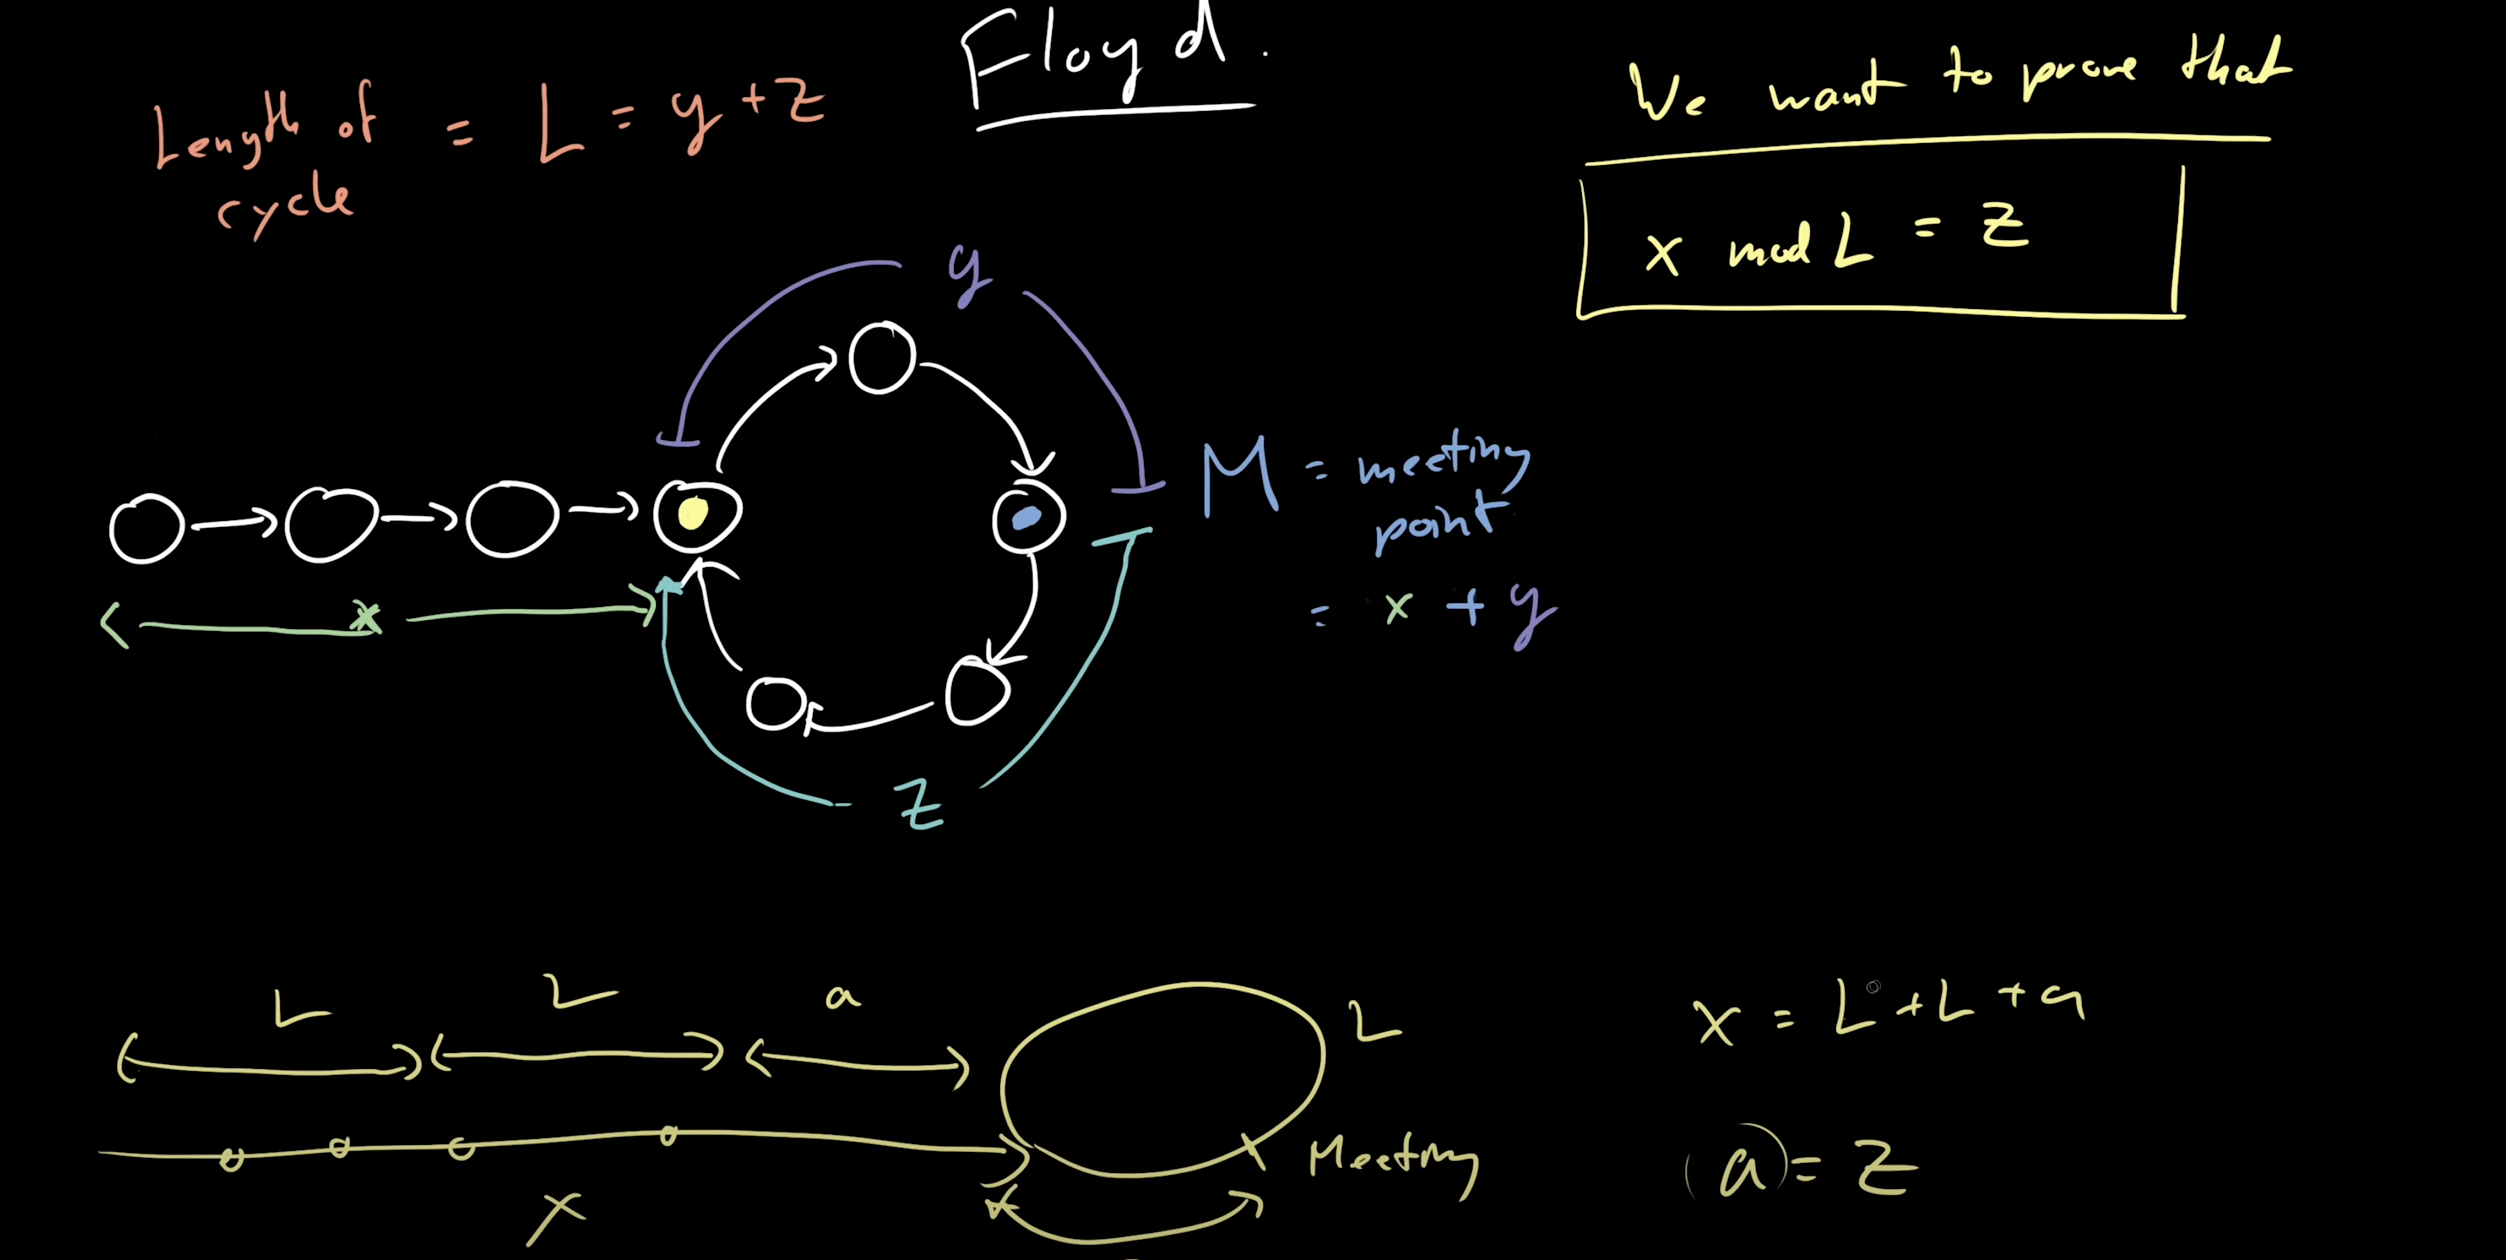 Floyd.
Length of cycle = L = y + z
We want to prove that
x mod L = z
y
M = meeting point
= x + y
x
z
L
L
a
L
x = L + L + a
Meeting
a = z
x